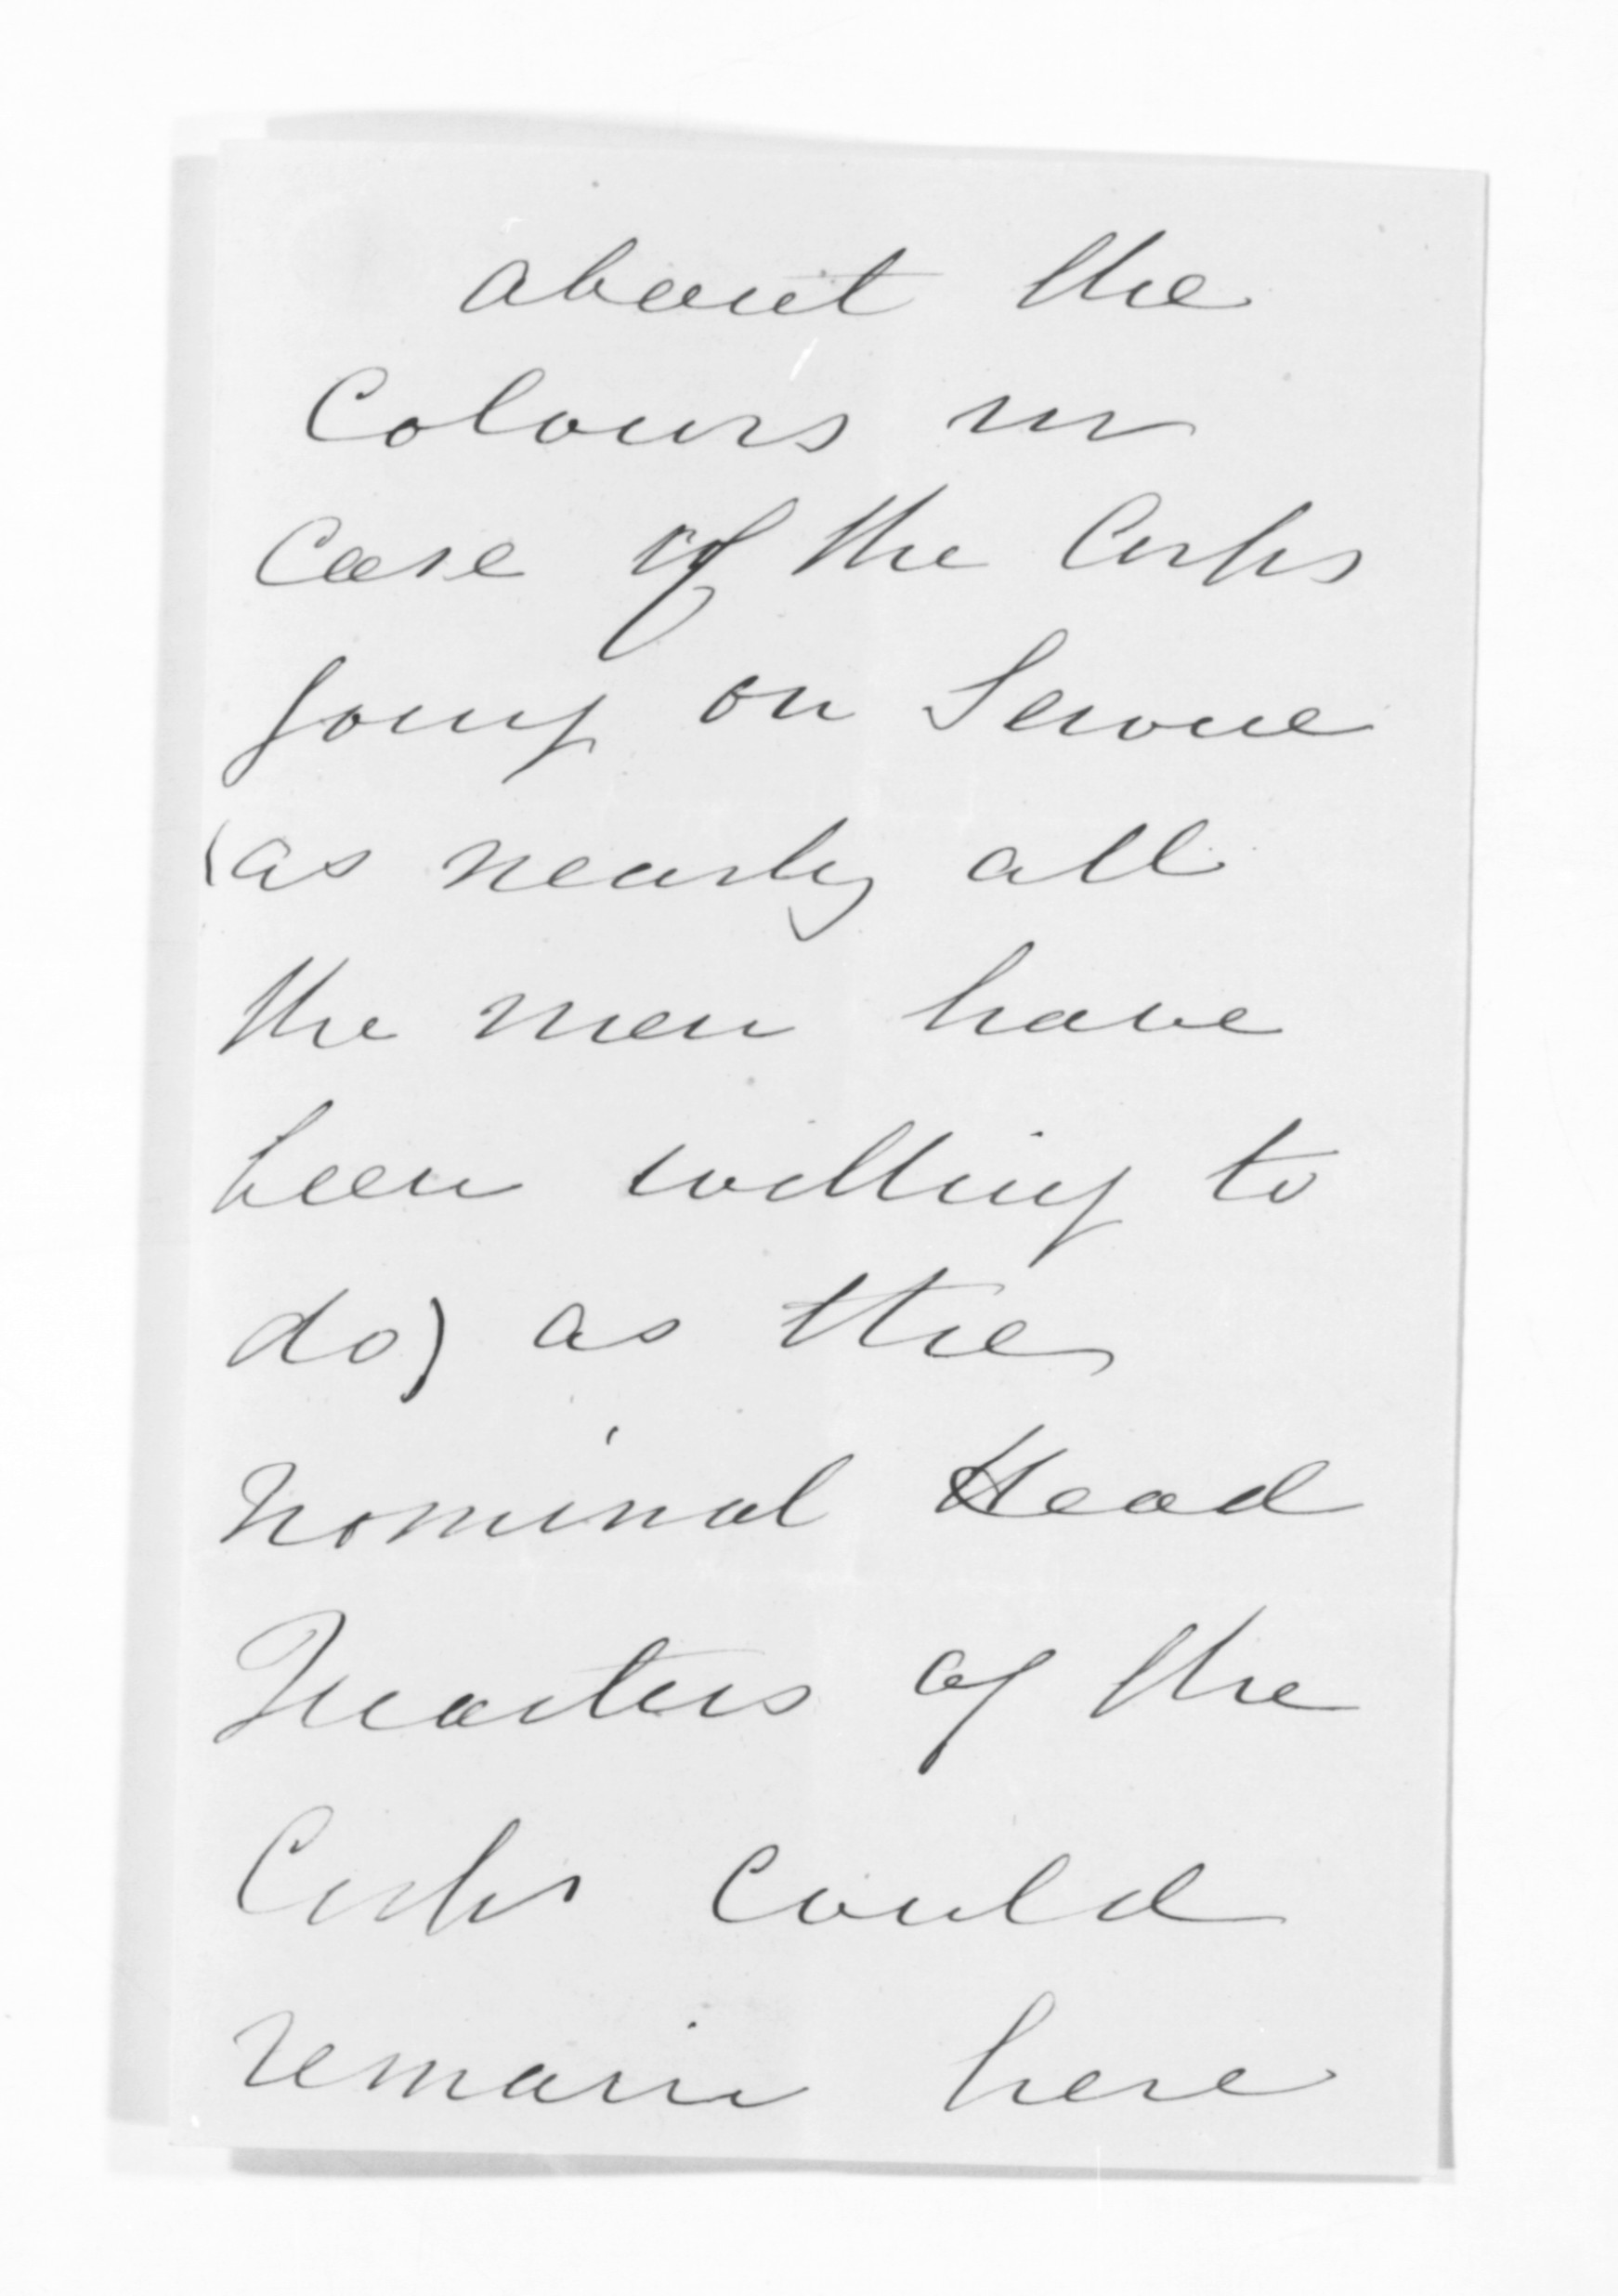 about the
Colours in
Case of the Corps
going on Service
(as nearly all
the men have
been willing to
do) as the
nominal Head
Quarters of the
Corps could
remain here